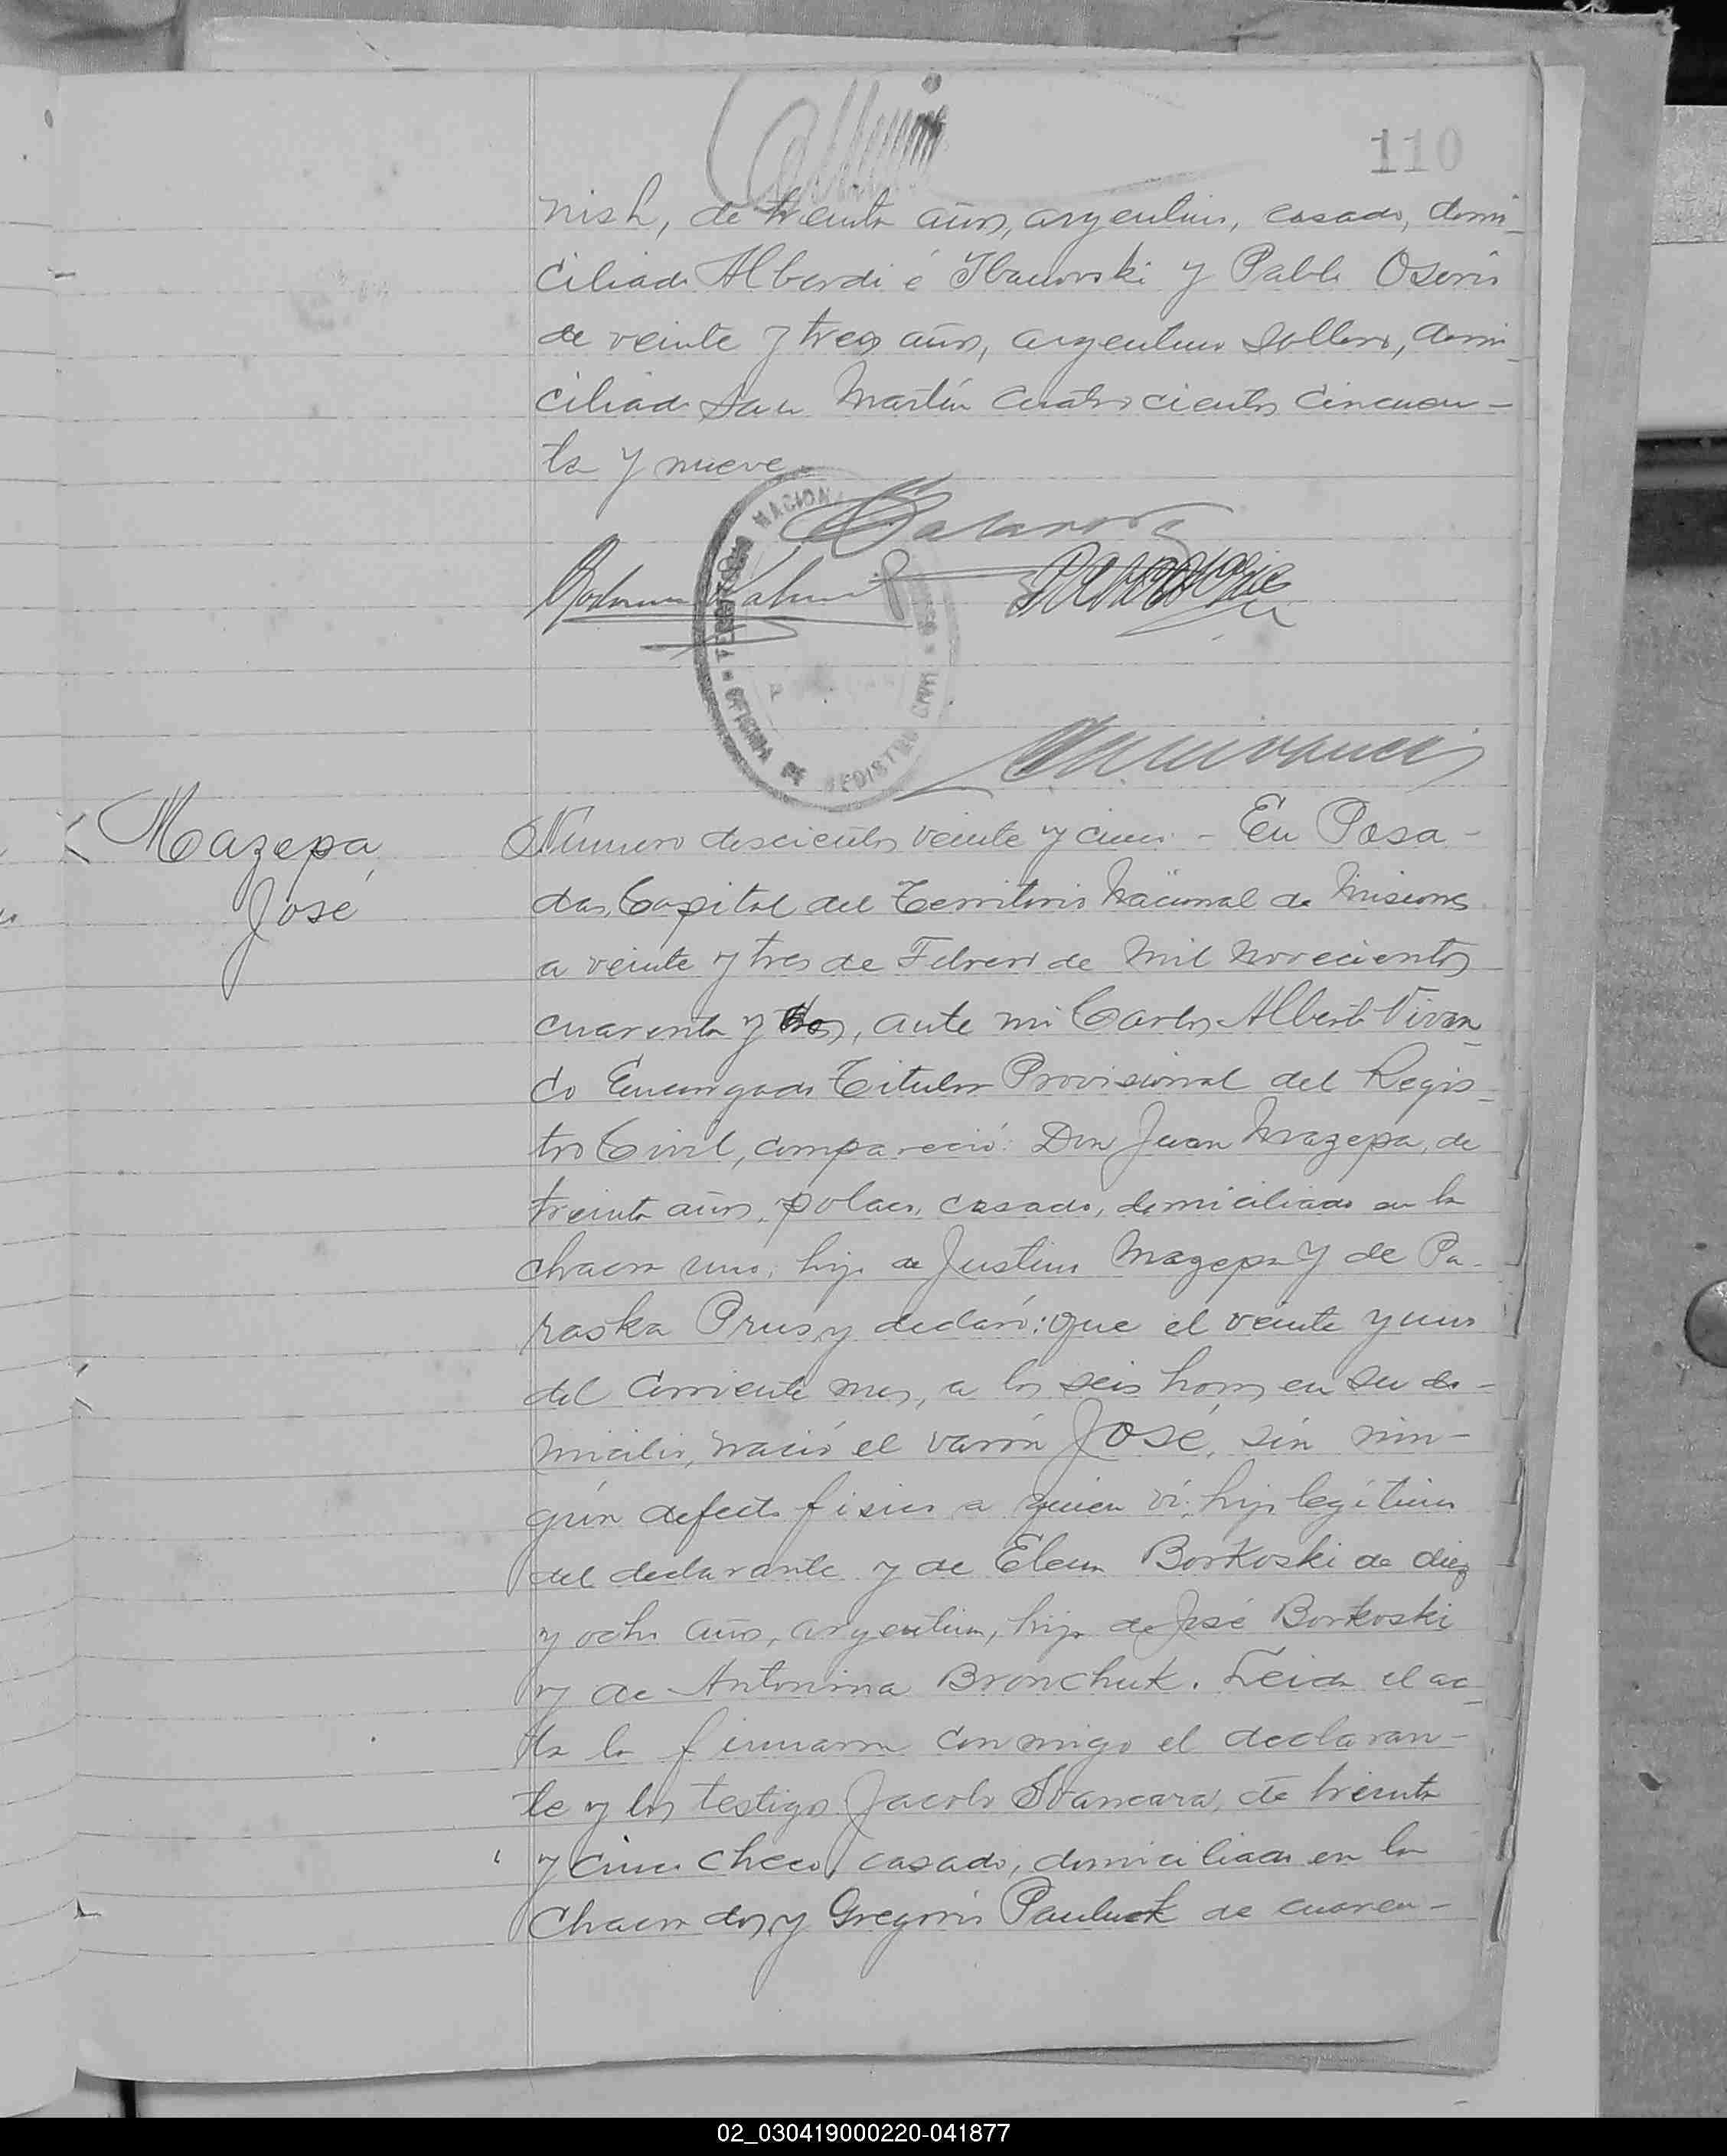 110
nish, de treinta años, argentino, casado, domi-
ciliado Alberdi é Ibanovski y Pablo Osorio
de veinte y tres años, argentino soltero, domi-
ciliado San Martín cuatrocientos cincuen-
ta y nueve
NACIONAL
OFICINA DE REGISTRO CIVIL
Mazepa
José
Número doscientos veinte y cinco - En Posa-
das, Capital del Territorio Nacional de Misiones
a veinte y tres de Febrero de mil novecientos
cuarenta y, ante mi Carlos Alberto Vivan
co Encargado Titular Provisional del Regis-
tro Civil, compareció: Don Juan Mazepa, de
treinta años, polaco, casado, domiciliado en la
chacra uno, hijo de Justino Mazepa y de Pa-
raska Prus, y declaró: que el veinte y uno
del corriente mes, a las seis horas en su do-
micilio, nació el varón José, sin nin-
gún defecto fisico a quien ví, hijo legítimo
del declarante y de Elena Borkoski de diez
y ocho años, argentina, hija de José Borkoski
y de Antonina Bronchuk. Leida el ac-
ta la firmaron conmigo el declaran-
te y los testigos Jacobo, de treinta
y cinco checo, casado, domiciliado en la
Chacra dos, y Gregorio Pauluk de cuaren-
02_030419000220-041877